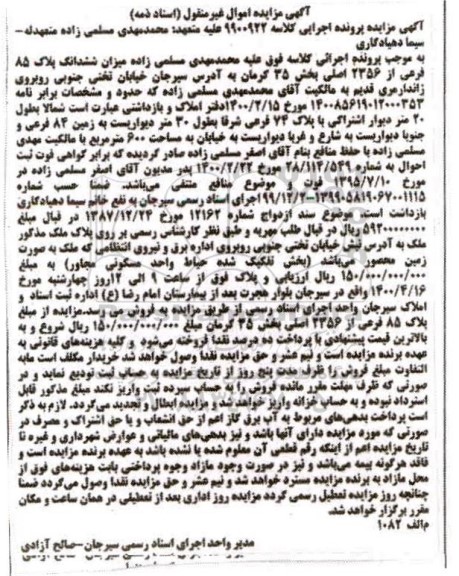 آگهی مزایده اموال غیرمنقول (اسناد ذمه)
آگهی مزایده پرونده اجرایی کلاسه ۹۹۰۰۹۲۲ علیه متعهد: محمدمهدی مسلمی زاده متعهدله-
سیما دهیادگاری
به موجب پرونده اجرائی کلاسه فوق علیه محمدمهدی مسلمی زاده میزان ششدانگ پلاک ۸۵
فرعی از ۲۳۵۶ اصلی بخش ۳۵ کرمان به آدرس سیرجان خیابان تختی جنوبی روبروی
ژاندارمری قدیم به مالکیت آقای محمدمهدی مسلمی زاده که حدود و مشخصات برابر نامه
۱۴۰۰۸۵۶۱۹۰۱۲۰۰۰۳۵۳ مورخ ۱۴۰۰/۲/۱۵دفتر املاک و بازداشتی عبارت است شمالا بطول
۲۰ متر دیوار اشتراکی با پلاک ۷۴ فرعی شرقا بطول ۳۰ متر دیواریست به زمین ۸۴ فرعی و
جنوبا دیواریست به شارع و غربا دیواریست به خیابان به مساحت ۶۰۰ مترمربع با مالکیت مهدی
مسلمی زاده با حفظ منافع بنام آقای اصغر مسلمی زاده صادر گردیده که برابر گواهی فوت ثبت
احوال به شماره ۲۸/۱۳/۵۴۹ مورخ ۱۴۰۰/۲/۲۲ پدر مدیون آقای اصغر مسلمی زاده در
مورخ ۱۳۹۵/۷/۱۰ فوت و موضوع منافع منتفی می‌باشد. ضمنا حسب شماره
۱۳۹۹۰۵۸۱۹۰۶۷۰۰۱۱۱۵-۹۹/۱۲/۲اجرای اسناد رسمی سیرجان به نفع خانم سیما دهیادگاری
بازداشت است. موضوع سند ازدواج شماره ۱۲۱۶۲ مورخ ۱۳۸۷/۱۲/۲۴ در قبال مبلغ
۵۹۲۰۰۰۰۰۰۰ ریال در قبال طلب مهریه و طبق نظر کارشناس رسمی بر روی پلاک ملک مذکور
ملک به آدرس نبش خیابان تختی جنوبی روبروی اداره برق و نیروی انتظامی که ملک به صورت
زمین محصور می‌باشد (بخش تفکیک شده حیاط واحد مسکونی مجاور) به مبلغ
۱۵۰/۰۰۰/۰۰۰/۰۰۰ ریال ارزیابی و پلاک فوق از ساعت ۹ الی ۱۲روز چهارشنبه مورخ
۱۴۰۰/۴/۱۶ واقع در سیرجان بلوار هجرت بعد از بیمارستان امام رضا (ع) اداره ثبت اسناد و
املاک سیرجان واحد اجرای اسناد رسمی از طریق مزایده به فروش می رسد.مزایده از مبلغ
پلاک ۸۵ فرعی از ۲۳۵۶ اصلی بخش ۳۵ کرمان مبلغ ۱۵۰/۰۰۰/۰۰۰/۰۰۰ ریال شروع و به
بالاترین قیمت پیشنهادی با پرداخت ده درصد نقدا فروخته می‌شود و کلیه هزینه‌های قانونی به
عهده برنده مزایده است و نیم عشر و حق مزایده نقدا وصول خواهد شد خریدار مکلف است مابه
التفاوت مبلغ فروش را ظرف مدت پنج روز از تاریخ مزایده به حساب ثبت تودیع نماید و در
صورتی که ظرف مهلت مقرر مانده فروش را به حساب سپرده ثبت واریز نکند مبلغ مذکور قابل
استرداد نبوده و به حساب خزانه واریز خواهد شد و مزایده ابطال و تجدید می‌گردد. لازم به ذکر
است پرداخت بدهی‌های مربوط به آب برق گاز اعم از حق انشعاب و یا حق اشتراک و مصرف در
صورتی که مورد مزایده دارای آنها باشد و نیز بدهی‌های مالیاتی و عوارض شهرداری و غیره تا
تاریخ مزایده اعم از اینکه رقم قطعی آن معلوم شده یا نشده باشد به عهده برنده مزایده است و
فاقد هرگونه بیمه می‌باشد و نیز در صورت وجود مازاد وجوه پرداختی بابت هزینه‌های فوق از
محل مازاد به برنده مزایده مسترد خواهد شد و نیم عشر و حق مزایده نقدا وصول می‌گردد ضمنا
چنانچه روز مزایده تعطیل رسمی گردد مزایده روز اداری بعد از تعطیلی در همان ساعت و مکان
مقرر برگزار خواهد شد.
م الف ۱۰۸۲
مدیر واحد اجرای اسناد رسمی سیرجان-صالح آزادی